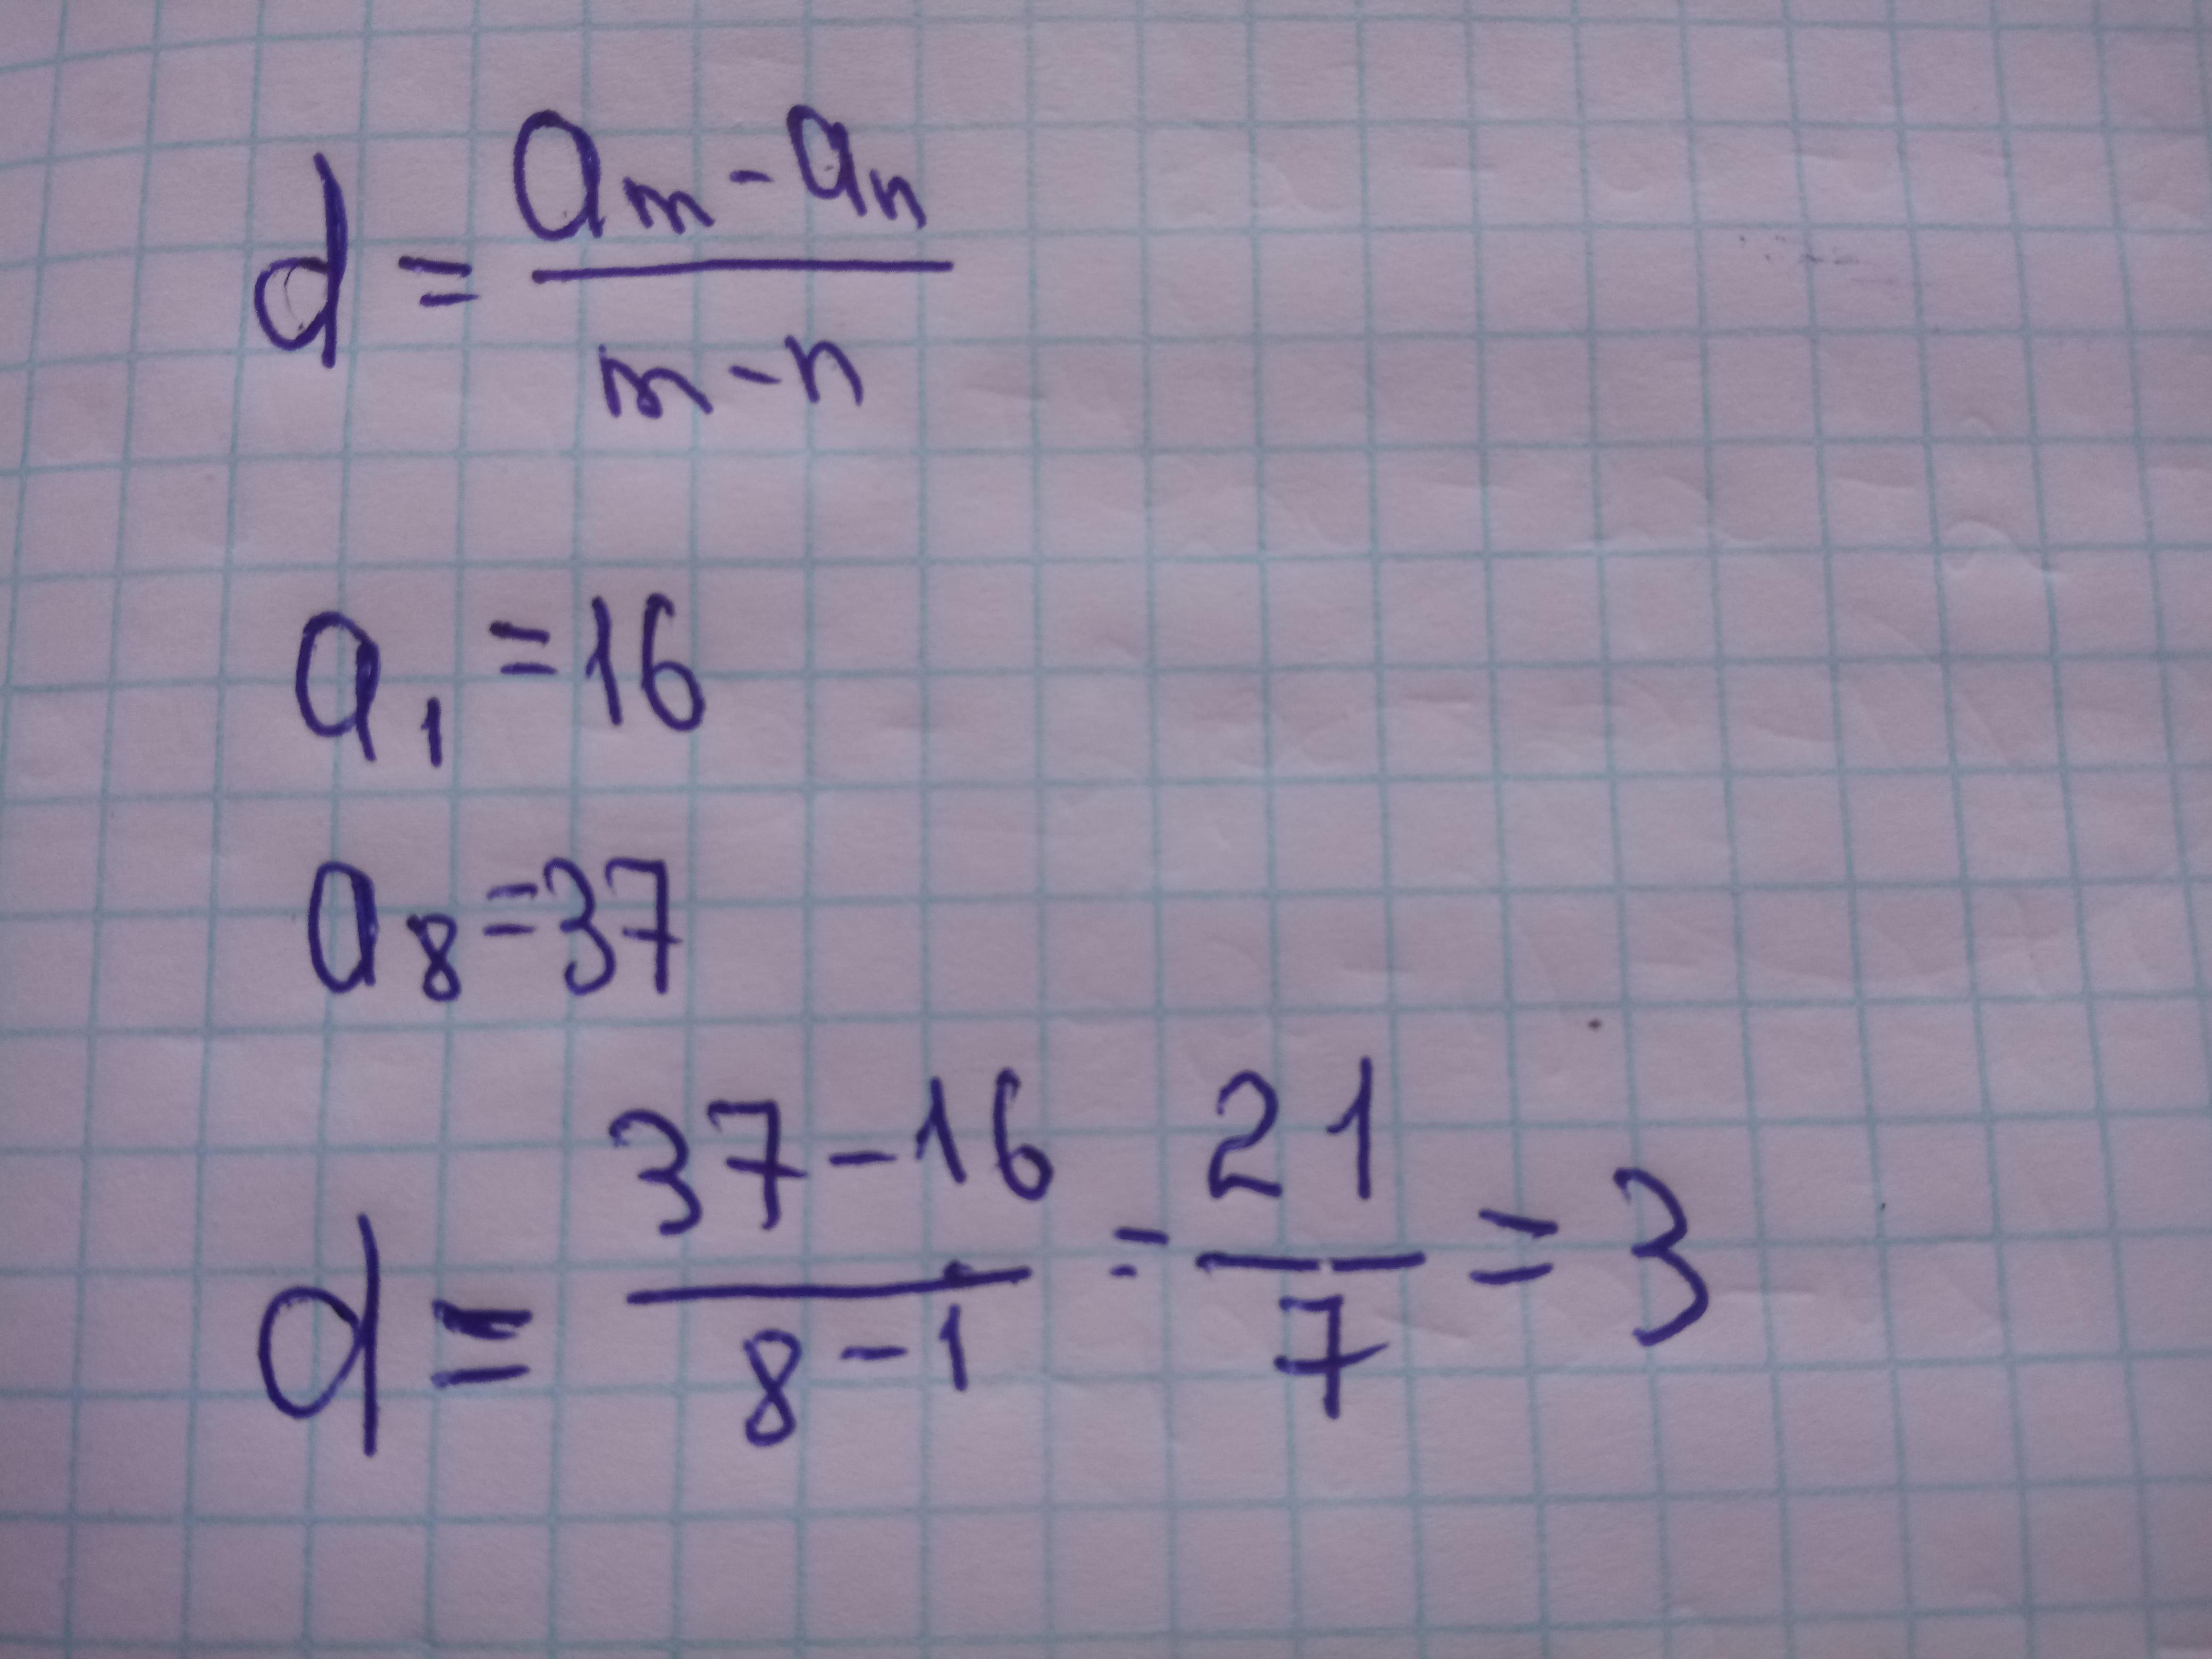 d = (aₘ - aₙ) / (m - n)
a₁ = 16
a₈ = 37
d = (37 - 16) / (8 - 1) = 21 / 7 = 3